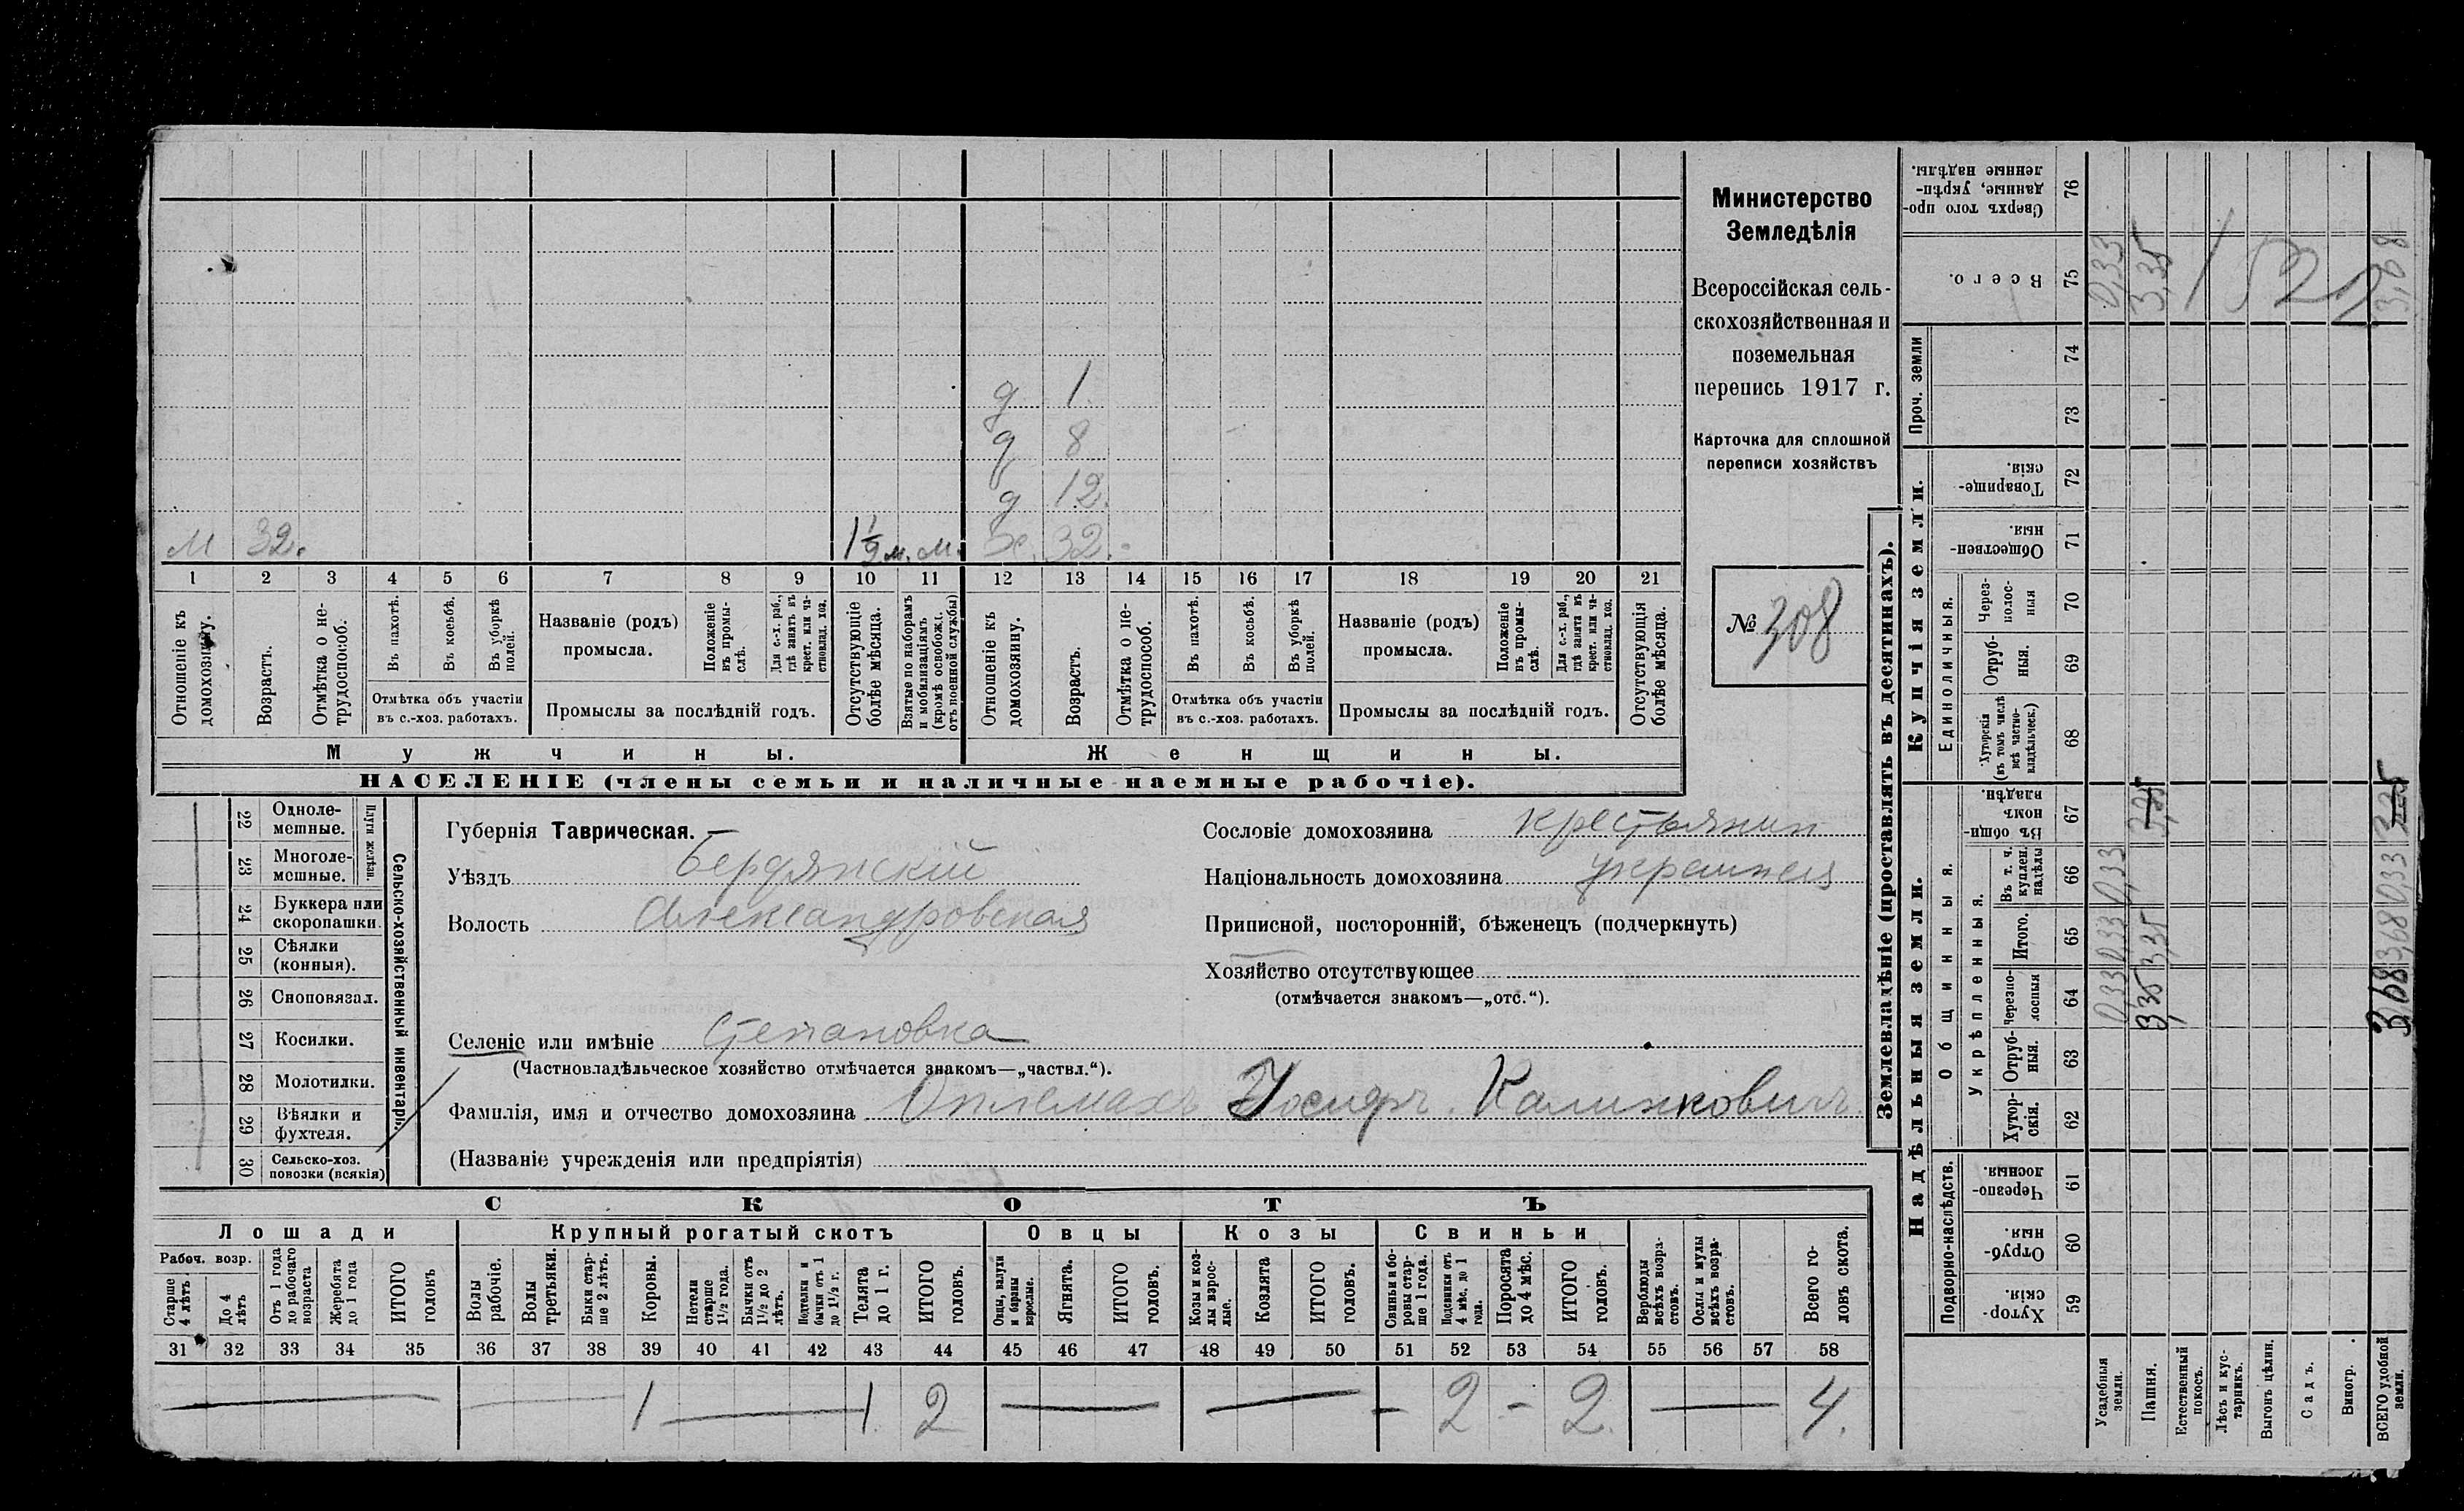 Министерство
Земледѣлія
Всероссійская сель-
скохозяйственная и
поземельная
перепись 1917 г.
Карточка для сплошной
переписи хозяйствъ
№ 308
д 1.
д 8
д 12.
М 32. 1½ м. М. Ж. 32.
1 2 3 4 5 6 7 8 9 10 11 12 13 14 15 16 17 18 19 20 21
Отношеніе къ домохозяину.
Возрастъ.
Отмѣтка о не-
трудоспособ.
Въ пахотѣ.
Въ косьбѣ.
Въ уборкѣ
полей.
Отмѣтка объ участіи
въ с.-хоз. работахъ.
Названіе (родъ)
промысла.
Положеніе
въ промы-
слѣ.
Для с.-х. раб.,
гдѣ занятъ въ
крест. или ча-
стновлад. хоз.
Промыслы за послѣдній годъ.
Отсутствующіе
болѣе мѣсяца.
Взятые по наборамъ
и мобилизаціямъ
(кромѣ освобожд.
отъ военной службы)
Отношеніе къ
домохозяину.
Возрастъ.
Отмѣтка о не-
трудоспособ.
Въ пахотѣ.
Въ косьбѣ.
Въ уборкѣ
полей.
Отмѣтка объ участіи
въ с.-хоз. работахъ.
Названіе (родъ)
промысла.
Положеніе
въ промы-
слѣ.
Для с.-х. раб.,
гдѣ занята въ
крест. или ча-
стновлад. хоз.
Промыслы за послѣдній годъ.
Отсутствующія
болѣе мѣсяца.
Мужчины. Женщины.
НАСЕЛЕНІЕ (члены семьи и наличные наемные рабочіе).
22 Одноле-
мешные.
23 Многоле-
мешные.
Плуги желѣзн.
24 Буккера или
скоропашки.
25 Сѣялки
(конныя).
26 Сноповязал.
27 Косилки.
28 Молотилки.
29 Вѣялки и
фухтеля.
30 Сельско-хоз.
повозки (всякія)
Сельско-хозяйственный инвентарь.
Губернія Таврическая.
Уѣздъ Бердянскій
Волость Александровская
Селеніе или имѣніе Степановка
(Частновладѣльческое хозяйство отмѣчается знакомъ—„частвл.“).
Фамилія, имя и отчество домохозяина Іосифъ
(Названіе учрежденія или предпріятія)
Сословіе домохозяина крестьянин
Національность домохозяина
Приписной, посторонній, бѣженец (подчеркнуть)
Хозяйство отсутствующее
(отмѣчается знакомъ—„отс.“).
СКОТЪ
Лошади Крупный рогатый скотъ Овцы Козы Свиньи
Рабоч. возр.
Старше
4 лѣтъ
До 4
лѣтъ
Отъ 1 года
до рабочаго
возраста
Жеребята
до 1 года
ИТОГО
головъ
Волы
рабочіе.
Волы
третьяки.
Быки стар-
ше 2 лѣтъ.
Коровы.
Нетели
старше
1½ года.
Бычки отъ
1½ до 2
лѣтъ.
Подтелки и
бычки отъ 1
до 1½ г.
Телята
до 1 г.
ИТОГО
головъ.
Овцы, валухи
и бараны
взрослые.
Ягнята.
ИТОГО
головъ.
Козы и коз-
лы взрос-
лые.
Козлята
ИТОГО
головъ.
Свиньи и бо-
ровы стар-
ше 1 года.
Подсвинки отъ
4 мѣс. до 1
года.
Поросята
до 4 мѣс.
ИТОГО
головъ.
Верблюды
всѣхъ возра-
стовъ.
Ослы и мулы
всѣхъ возра-
стовъ.
Всего го-
ловъ скота.
31 32 33 34 35 36 37 38 39 40 41 42 43 44 45 46 47 48 49 50 51 52 53 54 55 56 57 58
1 1 2 2 2 4
Землевладѣніе (проставлять въ десятинахъ).
Надѣльныя земли. Купчія земли. Проч. земли
Подворно-наслѣдств.
Общинныя.
Укрѣпленныя.
Единоличныя.
Хутор-
скія. 59
Отруб-
ныя. 60
Черезпо-
лосныя. 61
Хутор-
скія. 62
Отруб-
ныя. 63
Черезпо-
лосныя 64
Итого. 65
Въ т. ч.
куплен.
надѣлы 66
Въ общи-
номъ
владѣн. 67
Хуторскія
(въ томъ числѣ
всѣ частно-
владѣльческ.) 68
Отруб-
ныя. 69
Через-
полос-
ныя 70
Обществен-
ныя. 71
Товарище-
скія. 72
73
74
Всего. 75
Сверхъ того про-
данные, укрѣп-
ленные надѣлы. 76
Усадебныя
земли. 0,33 0,33 0,33 0,33
Пашня. 3,35 3,35 3,35 3,35
Естественный
покосъ.
Лѣсъ и кус-
тарникъ.
Выгонъ цѣлин.
Садъ.
Виногр.
ВСЕГО удобной
земли. 3,68 3,68 0,33 3,35 3,68